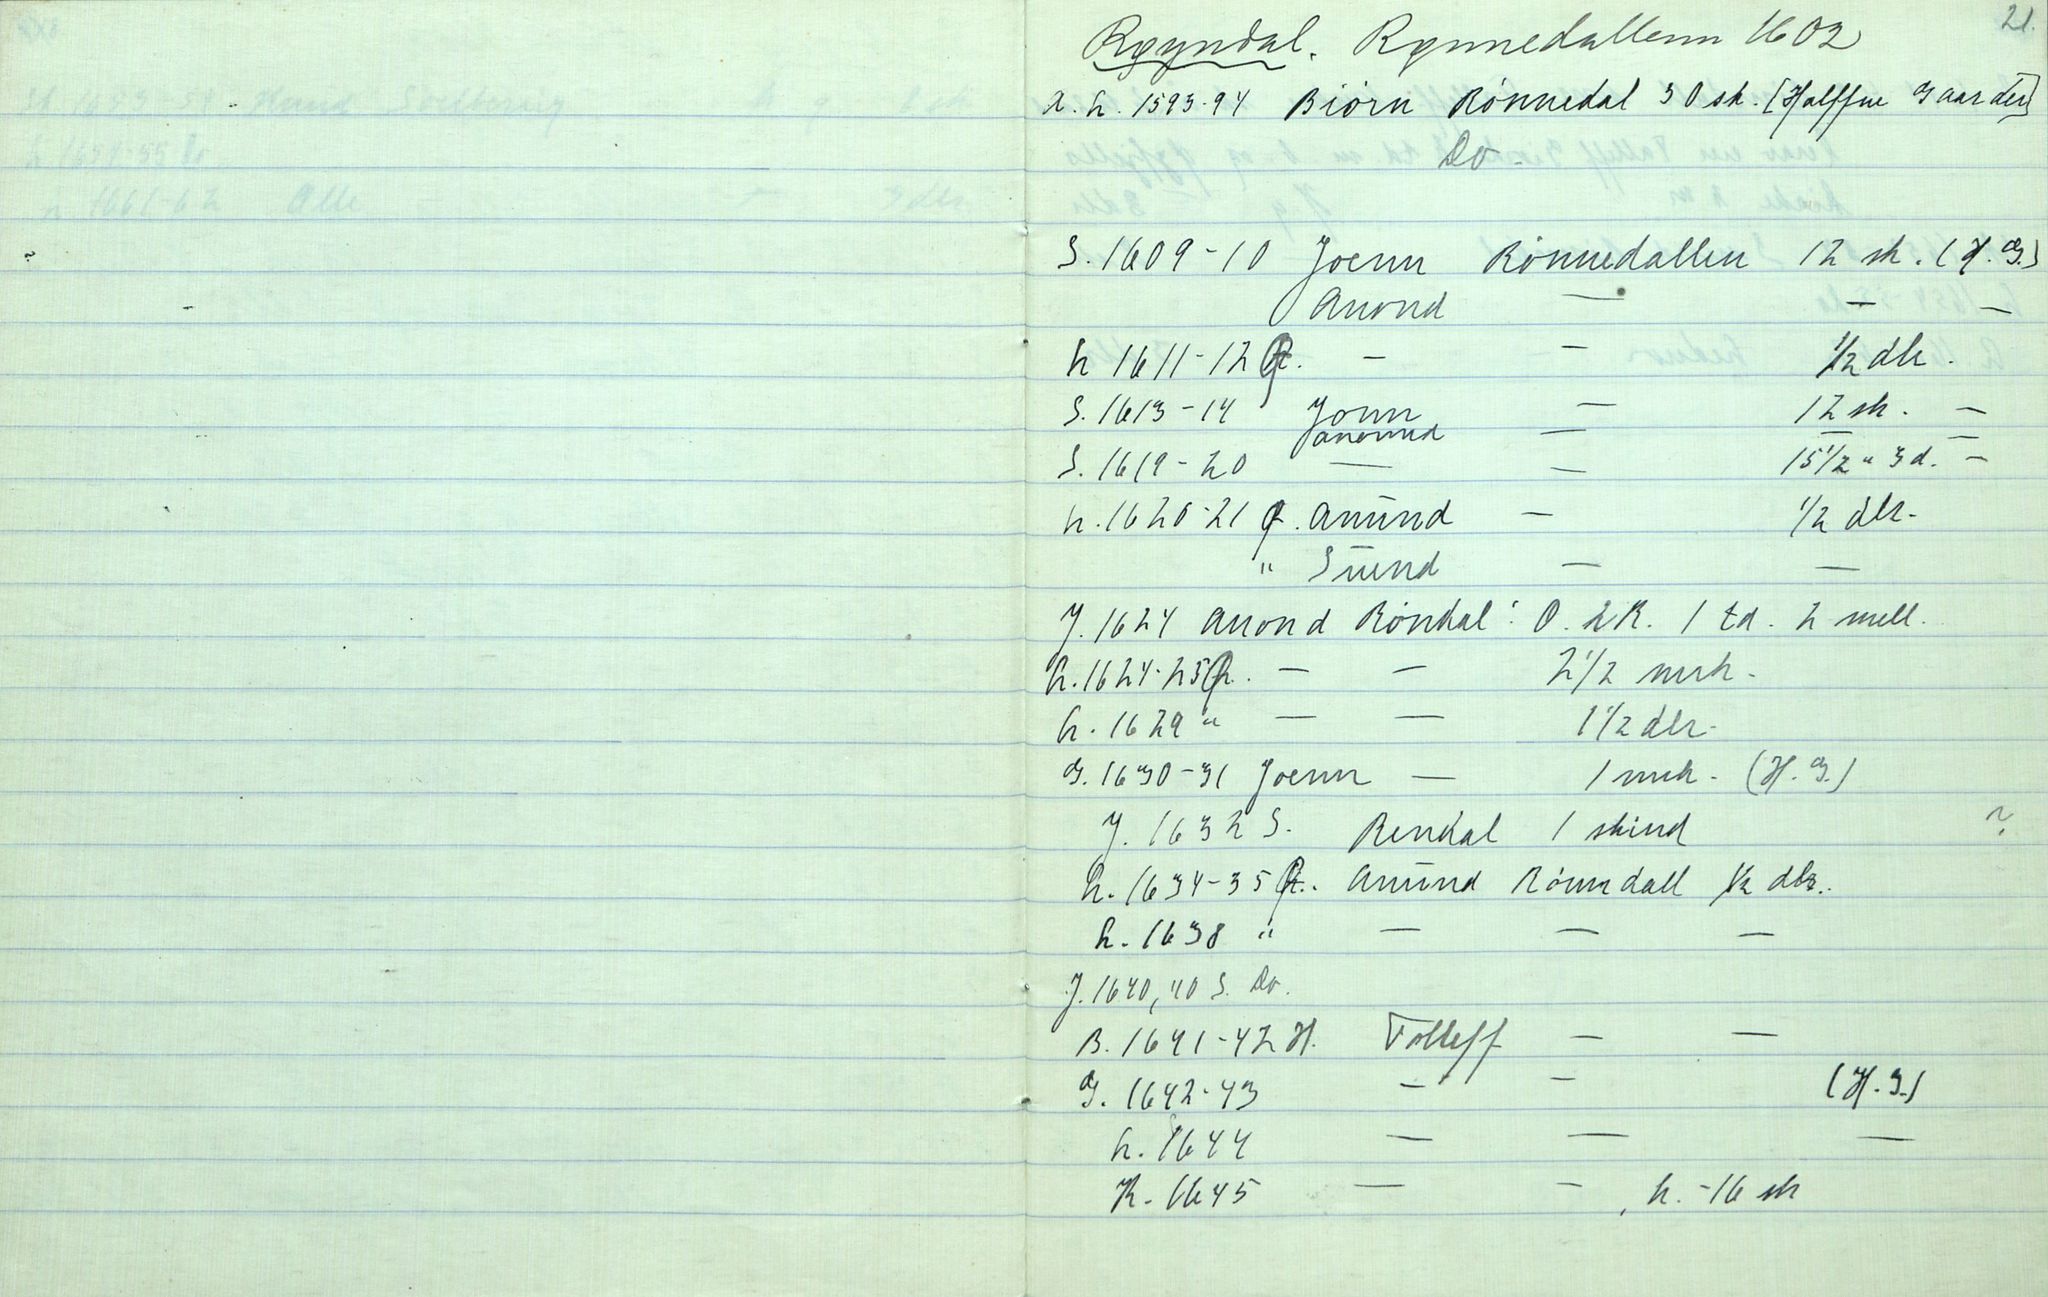 21.
Røyndal. Rønnedallenn 1602
X. L. 1593-94 Biørn Rønnedal 30 sk. [Halffue Gaarder]
Do.
S. 1609-10 Joenn Rønnedallen 12 sk. (H. G.)
Anond — — —
L 1611-12 R. — — 1/2 dlr.
S. 1613-14 Jonn — 12 sk. —
Anonnd — — —
S. 1619-20 — — 15 1/2 " 3 d. —
L. 1620-21 R. Anŭnd — 1/2 dlr.
" Sŭend — —
J. 1624 Anond Röndal: O. 2 R. 1 td. 2 mell.
L. 1624-25 R. — — 2 1/2 mrk.
L. 1629 " — — 1 1/2 dlr.
G. 1630-31 Joenn — 1 mrk. (H. G.)
J. 1632 S. Rendal 1 skind ?
L. 1634-35 R. Anŭnd Rönndall 1/2 dlr.
L. 1638 " — — —
J. 1640, 40 S. Do.
B. 1641-42 H. Tolleff — —
G. 1642-43 — — (H. G.)
L. 1644 — — —
K. 1645 — — , h. -16 sk